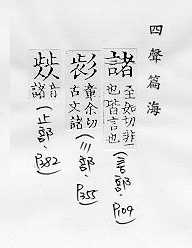 四聲篇海
諸 至如切非一
也皆言也 (言部, P109)
章余切
古文諸 (彡部, P355)
音
諸 (止部, P382)